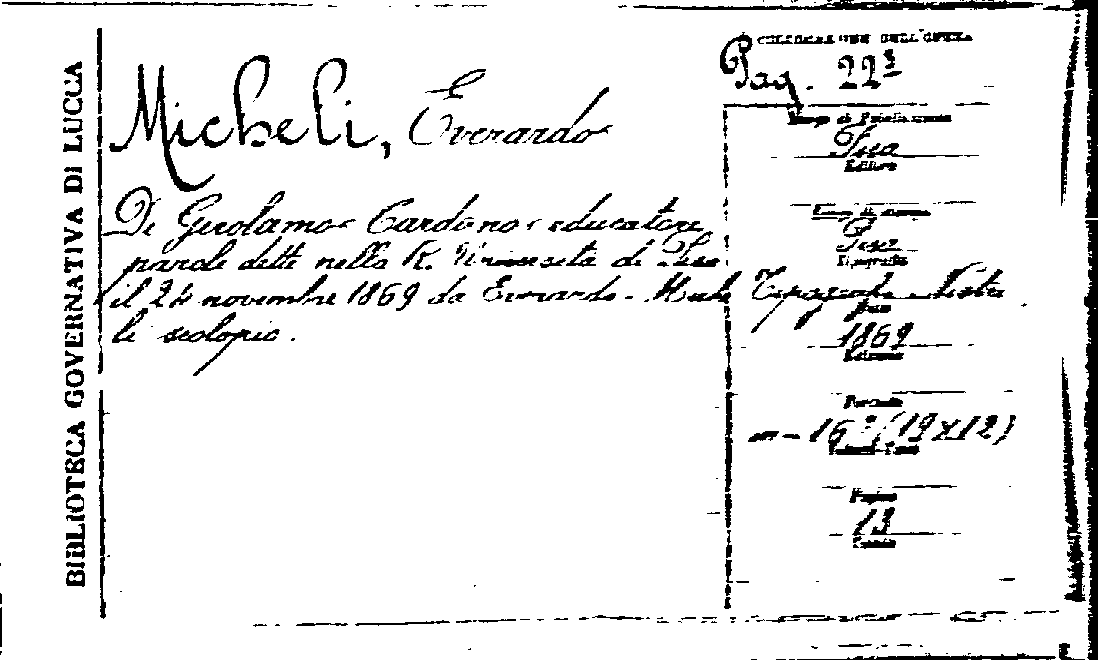 BIBLIOTECA GOVERNATIVA DI LUCCA
COLLOCAZIONE DELL'OPERA
Pag. 22³
Micheli, Everardo
Luogo di Pubblicazione
Pisa
Editore
De Girolamo Cardano educatore
parole dette nella R. Università di Pisa
il 24 novembre 1869 da Everardo Miche
li scolopio.
Luogo di stampa
Pisa
Tipografia
Tipografia Nistri
Anno
1869
Edizione
Formato
in-16° (19x12)
Pagine
13